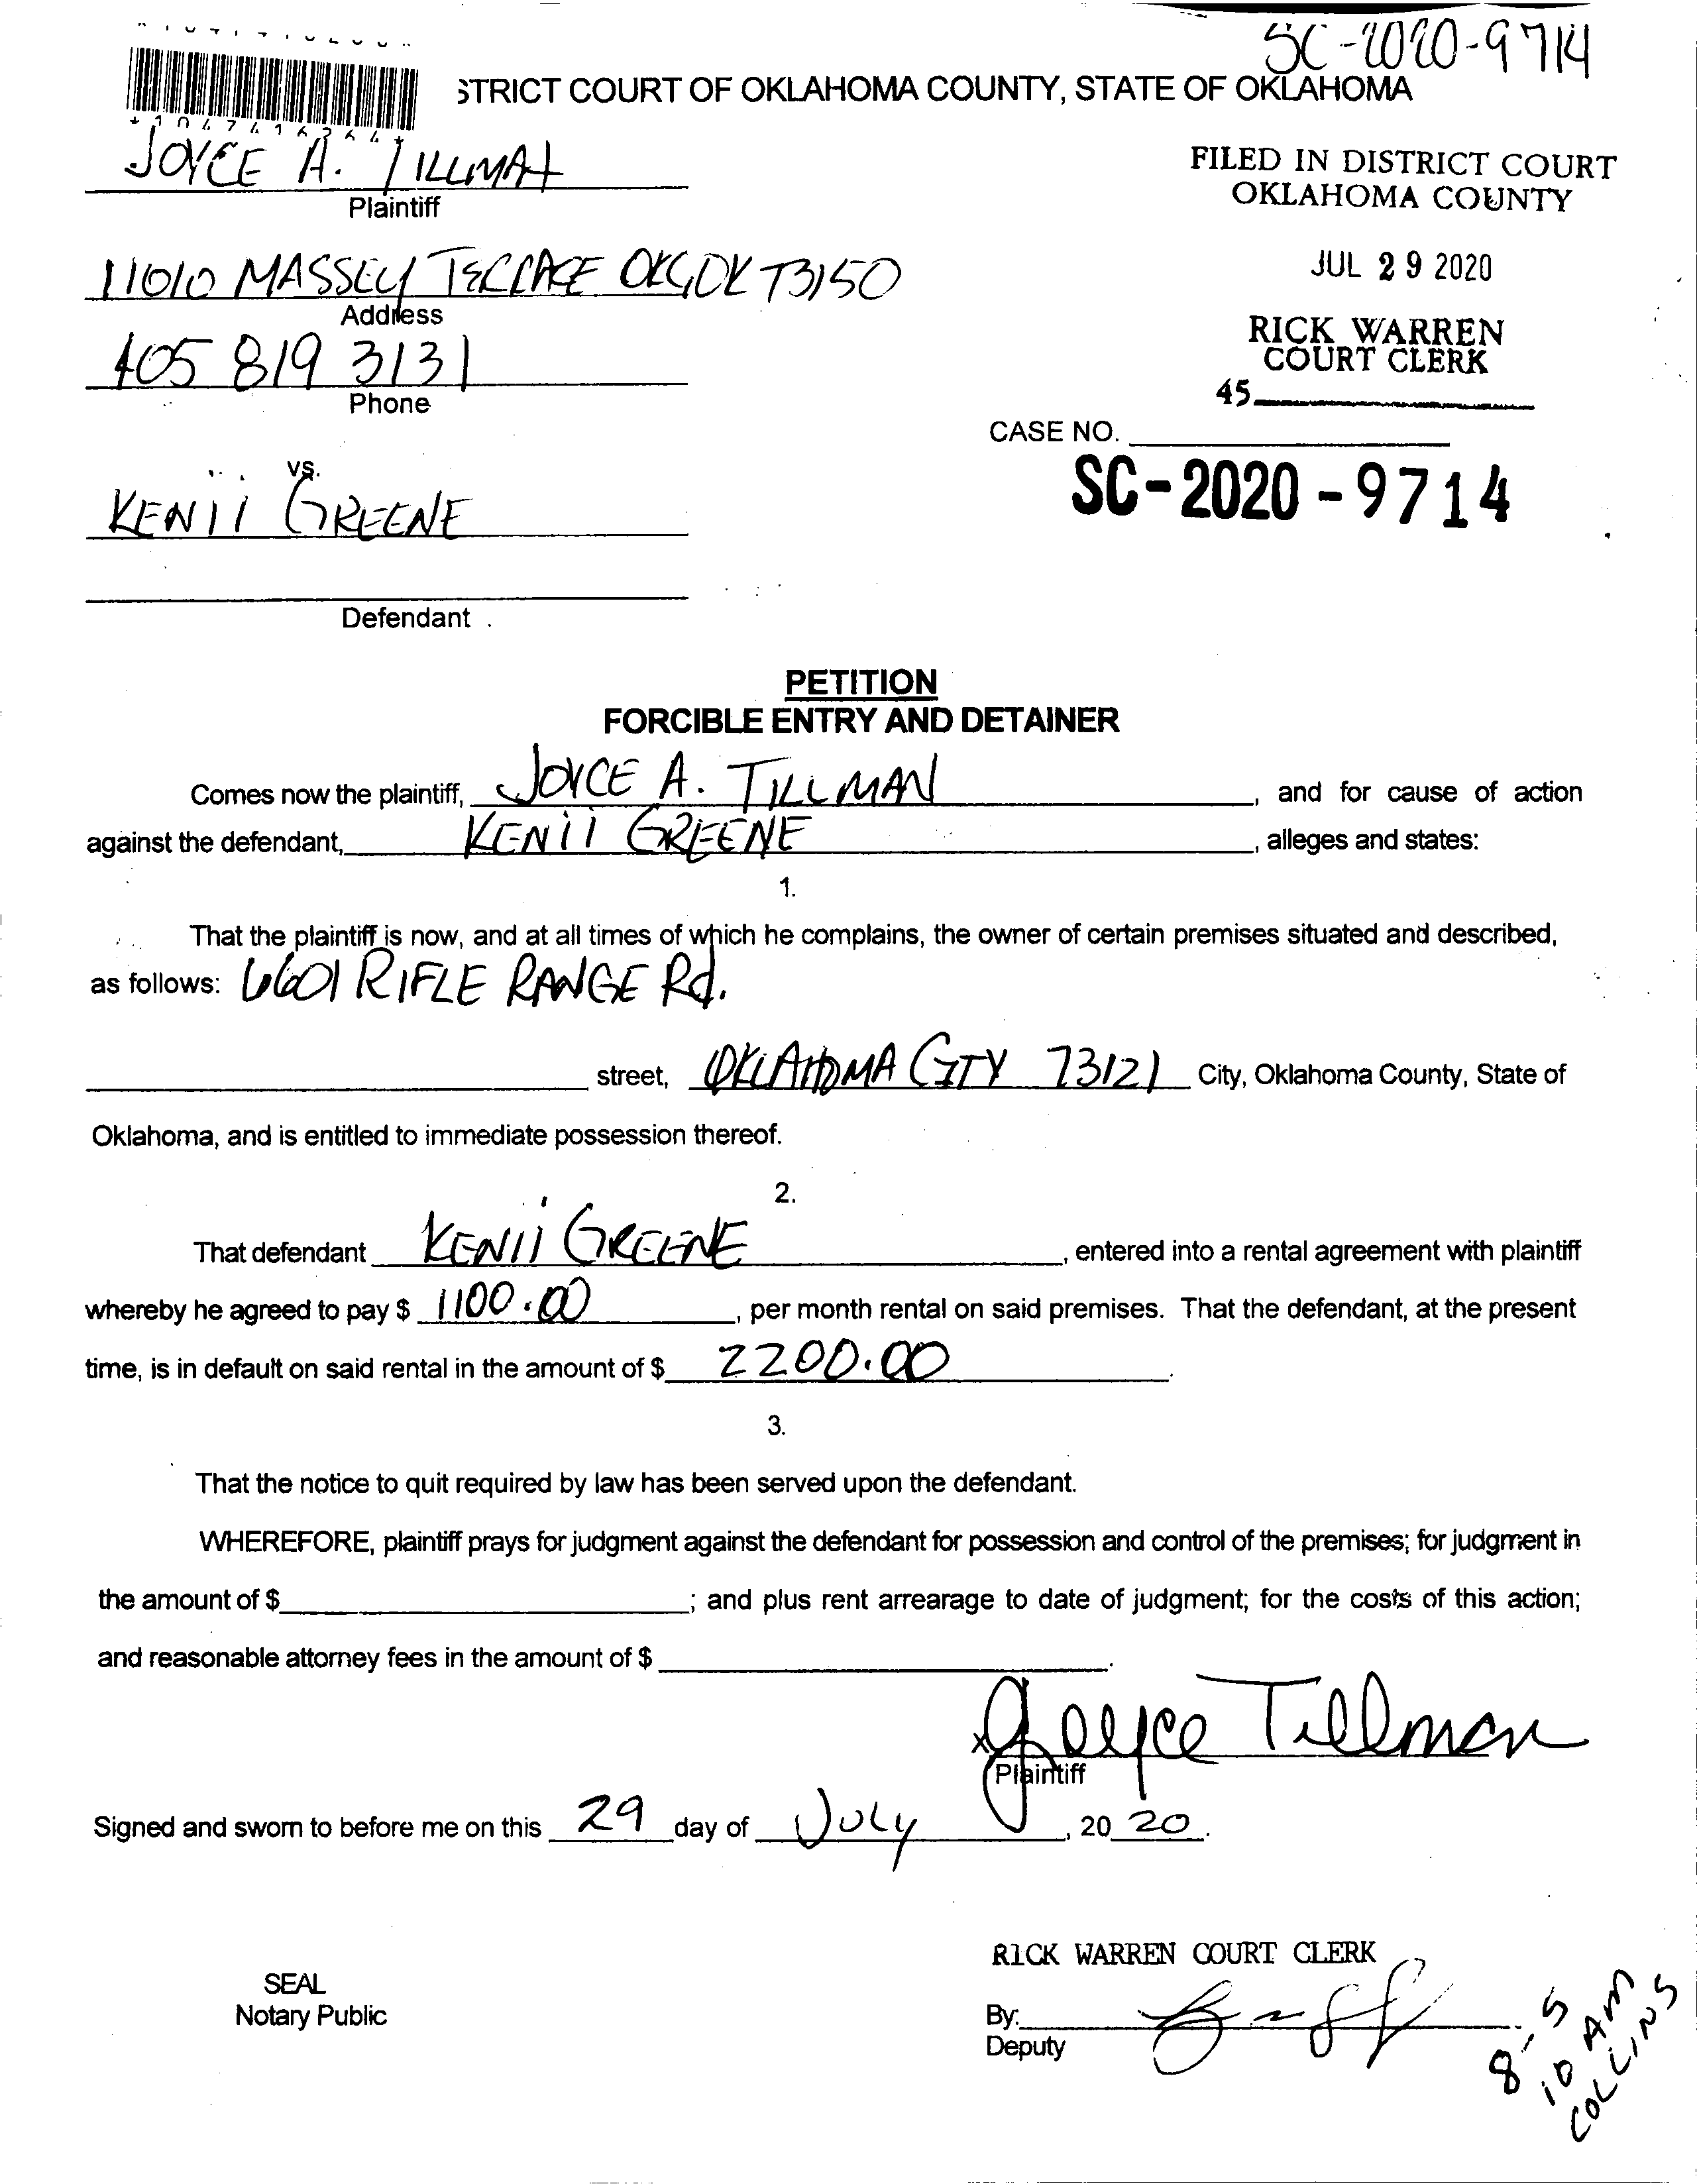 SC-2020-9714
STRICT COURT OF OKLAHOMA COUNTY, STATE OF OKLAHOMA
JOYCE A. TILLMAN
Plaintiff
FILED IN DISTRICT COURT
OKLAHOMA COUNTY
11010 MASSEY TERRACE OKC, OK 73150
Address
JUL 29 2020
405 819 3131
Phone
RICK WARREN
COURT CLERK
45
CASE NO.
SC-2020-9714
vs.
KENII GREENE
Defendant
PETITION
FORCIBLE ENTRY AND DETAINER
Comes now the plaintiff, JOYCE A. TILLMAN, and for cause of action
against the defendant, KENII GREENE, alleges and states:
1.
That the plaintiff is now, and at all times of which he complains, the owner of certain premises situated and described,
as follows: 6601 RIFLE RANGE Rd.
street, OKLAHOMA CITY 73121 City, Oklahoma County, State of
Oklahoma, and is entitled to immediate possession thereof.
2.
That defendant KENII GREENE, entered into a rental agreement with plaintiff
whereby he agreed to pay $ 1100.00, per month rental on said premises. That the defendant, at the present
time, is in default on said rental in the amount of $ 2200.00.
3.
That the notice to quit required by law has been served upon the defendant.
WHEREFORE, plaintiff prays for judgment against the defendant for possession and control of the premises; for judgment in
the amount of $; and plus rent arrearage to date of judgment; for the costs of this action;
and reasonable attorney fees in the amount of $.
x Joyce Tillman
Plaintiff
Signed and sworn to before me on this 29 day of July, 20 20.
RICK WARREN COURT CLERK
SEAL
Notary Public
By:
Deputy
8-5
10 AM
COLLINS